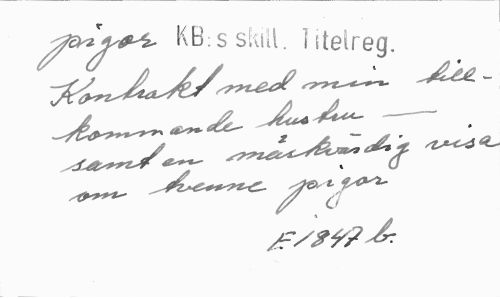 pigor KB:s skill. Titelreg.
Kontrakt med min till-
kommande hustru —
samt en märkvärdig visa
om tvenne pigor
E 1847 b.